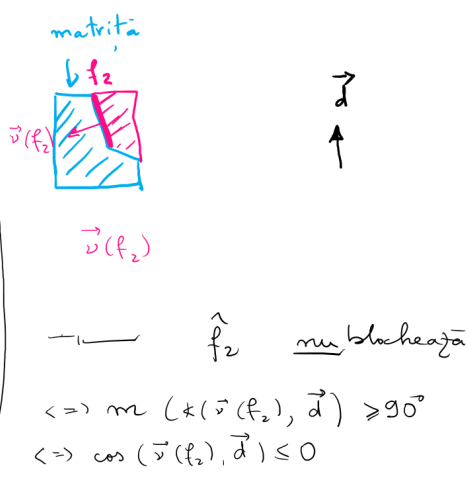 matriță
f₂
ν⃗(f₂)
d⃗
ν⃗(f₂)
—ıı— f̂₂ nu blochează
<=> m (∢(ν⃗(f₂), d⃗) ≥ 90°
<=> cos (ν⃗(f₂), d⃗) ≤ 0